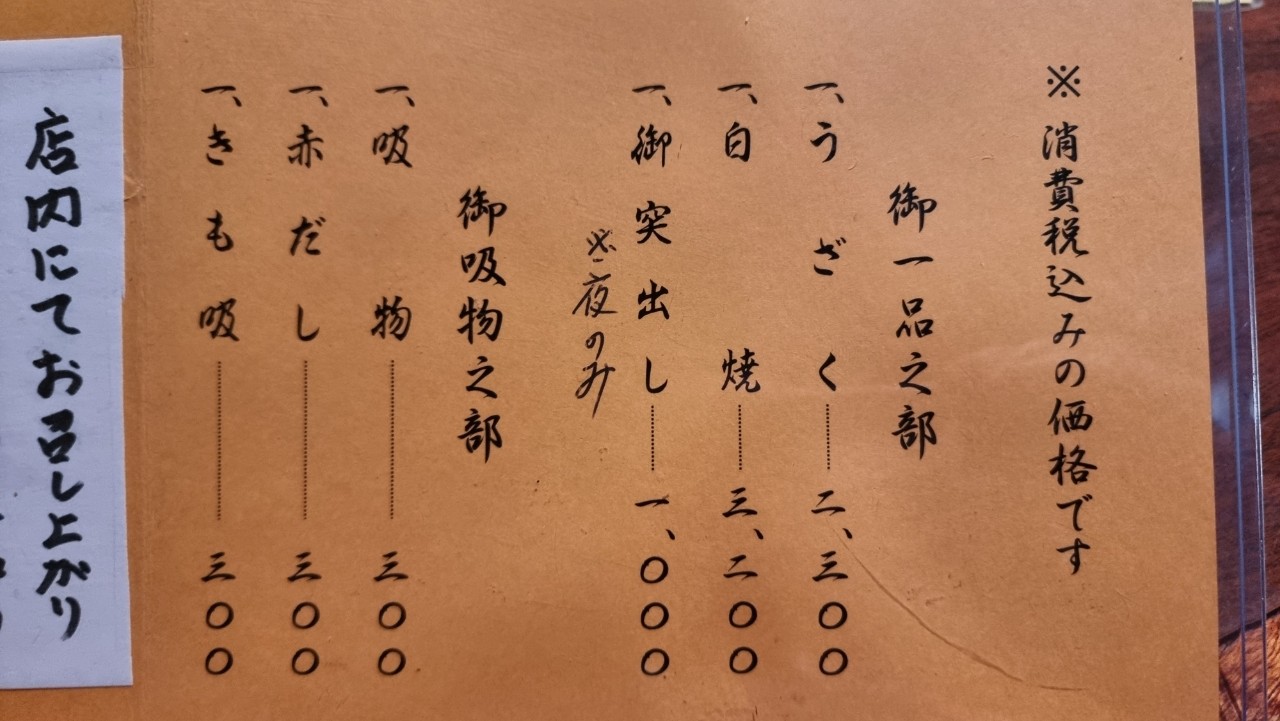 ※消費税込みの価格です
御一品之部
一、うざく…………二、三〇〇
一、白焼…………三、二〇〇
一、御突出し…………一、〇〇〇
※夜のみ
御吸物之部
一、吸物…………三〇〇
一、赤だし…………三〇〇
一、きも吸…………三〇〇
店内にてお召し上がり